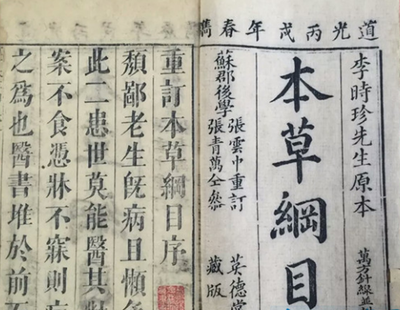 道光丙戌年春鐫
李時珍先生原本
萬方針線並
本草綱目
蘇郡後學
張雲中重訂
張青萬仝參
英德堂
藏版
重訂本草綱目序
頹鄙老生既病且懶
此二患世莫能醫其對
案不食憑牀不寐則
之爲也醫書堆於前